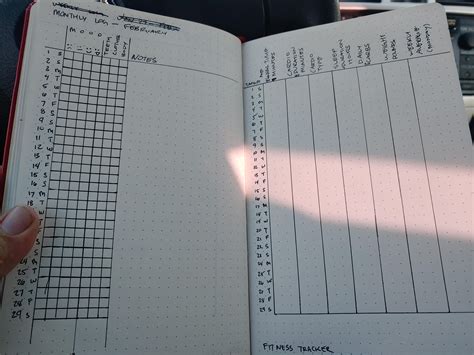 MONTHLY LOG – FEBRUARY
M O O D
TEETH
NOTES
1 S
2 S
3 M
4 T
5 W
6 T
7 F
8 S
9 S
10 M
11 T
12 W
13 T
14 F
15 S
16 S
17 M
18 T
W
T
F
S
S
24 M
25 T
26 W
27 T
28 F
29 S
CARDIO DURATION MINUTES
CARDIO TYPE
SLEEP DURATION TIMES
DAILY
WEIGHT
WEEKLY AVERAGE (SUNDAY)
1 S
2 S
3 M
4 T
5 W
6 T
7 F
8 S
9 S
10 M
11 T
12 W
13 T
14 F
15 S
16 S
17 M
18 T
19 W
20 T
21 F
22 S
23 S
24 M
25 T
26 W
27 T
28 F
29 S
FITNESS TRACKER